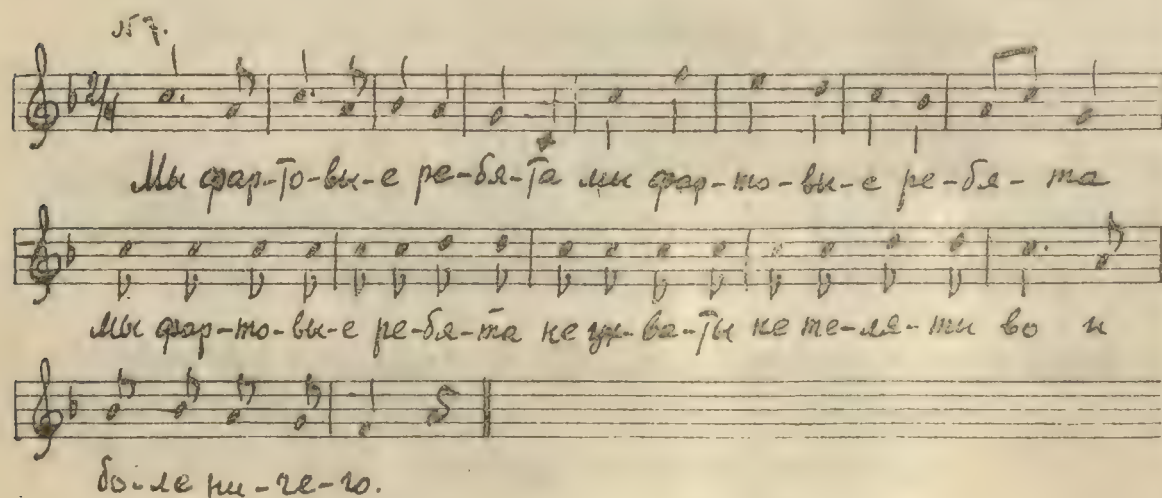 № 7.
2/4
Мы фар-то-вы-е ре-бя-та мы фар-то-вы-е ре-бя-та
мы фар-то-вы-е ре-бя-та не ух-ва-ты не те-ля-ти во и
бо-ле ни-че-го.